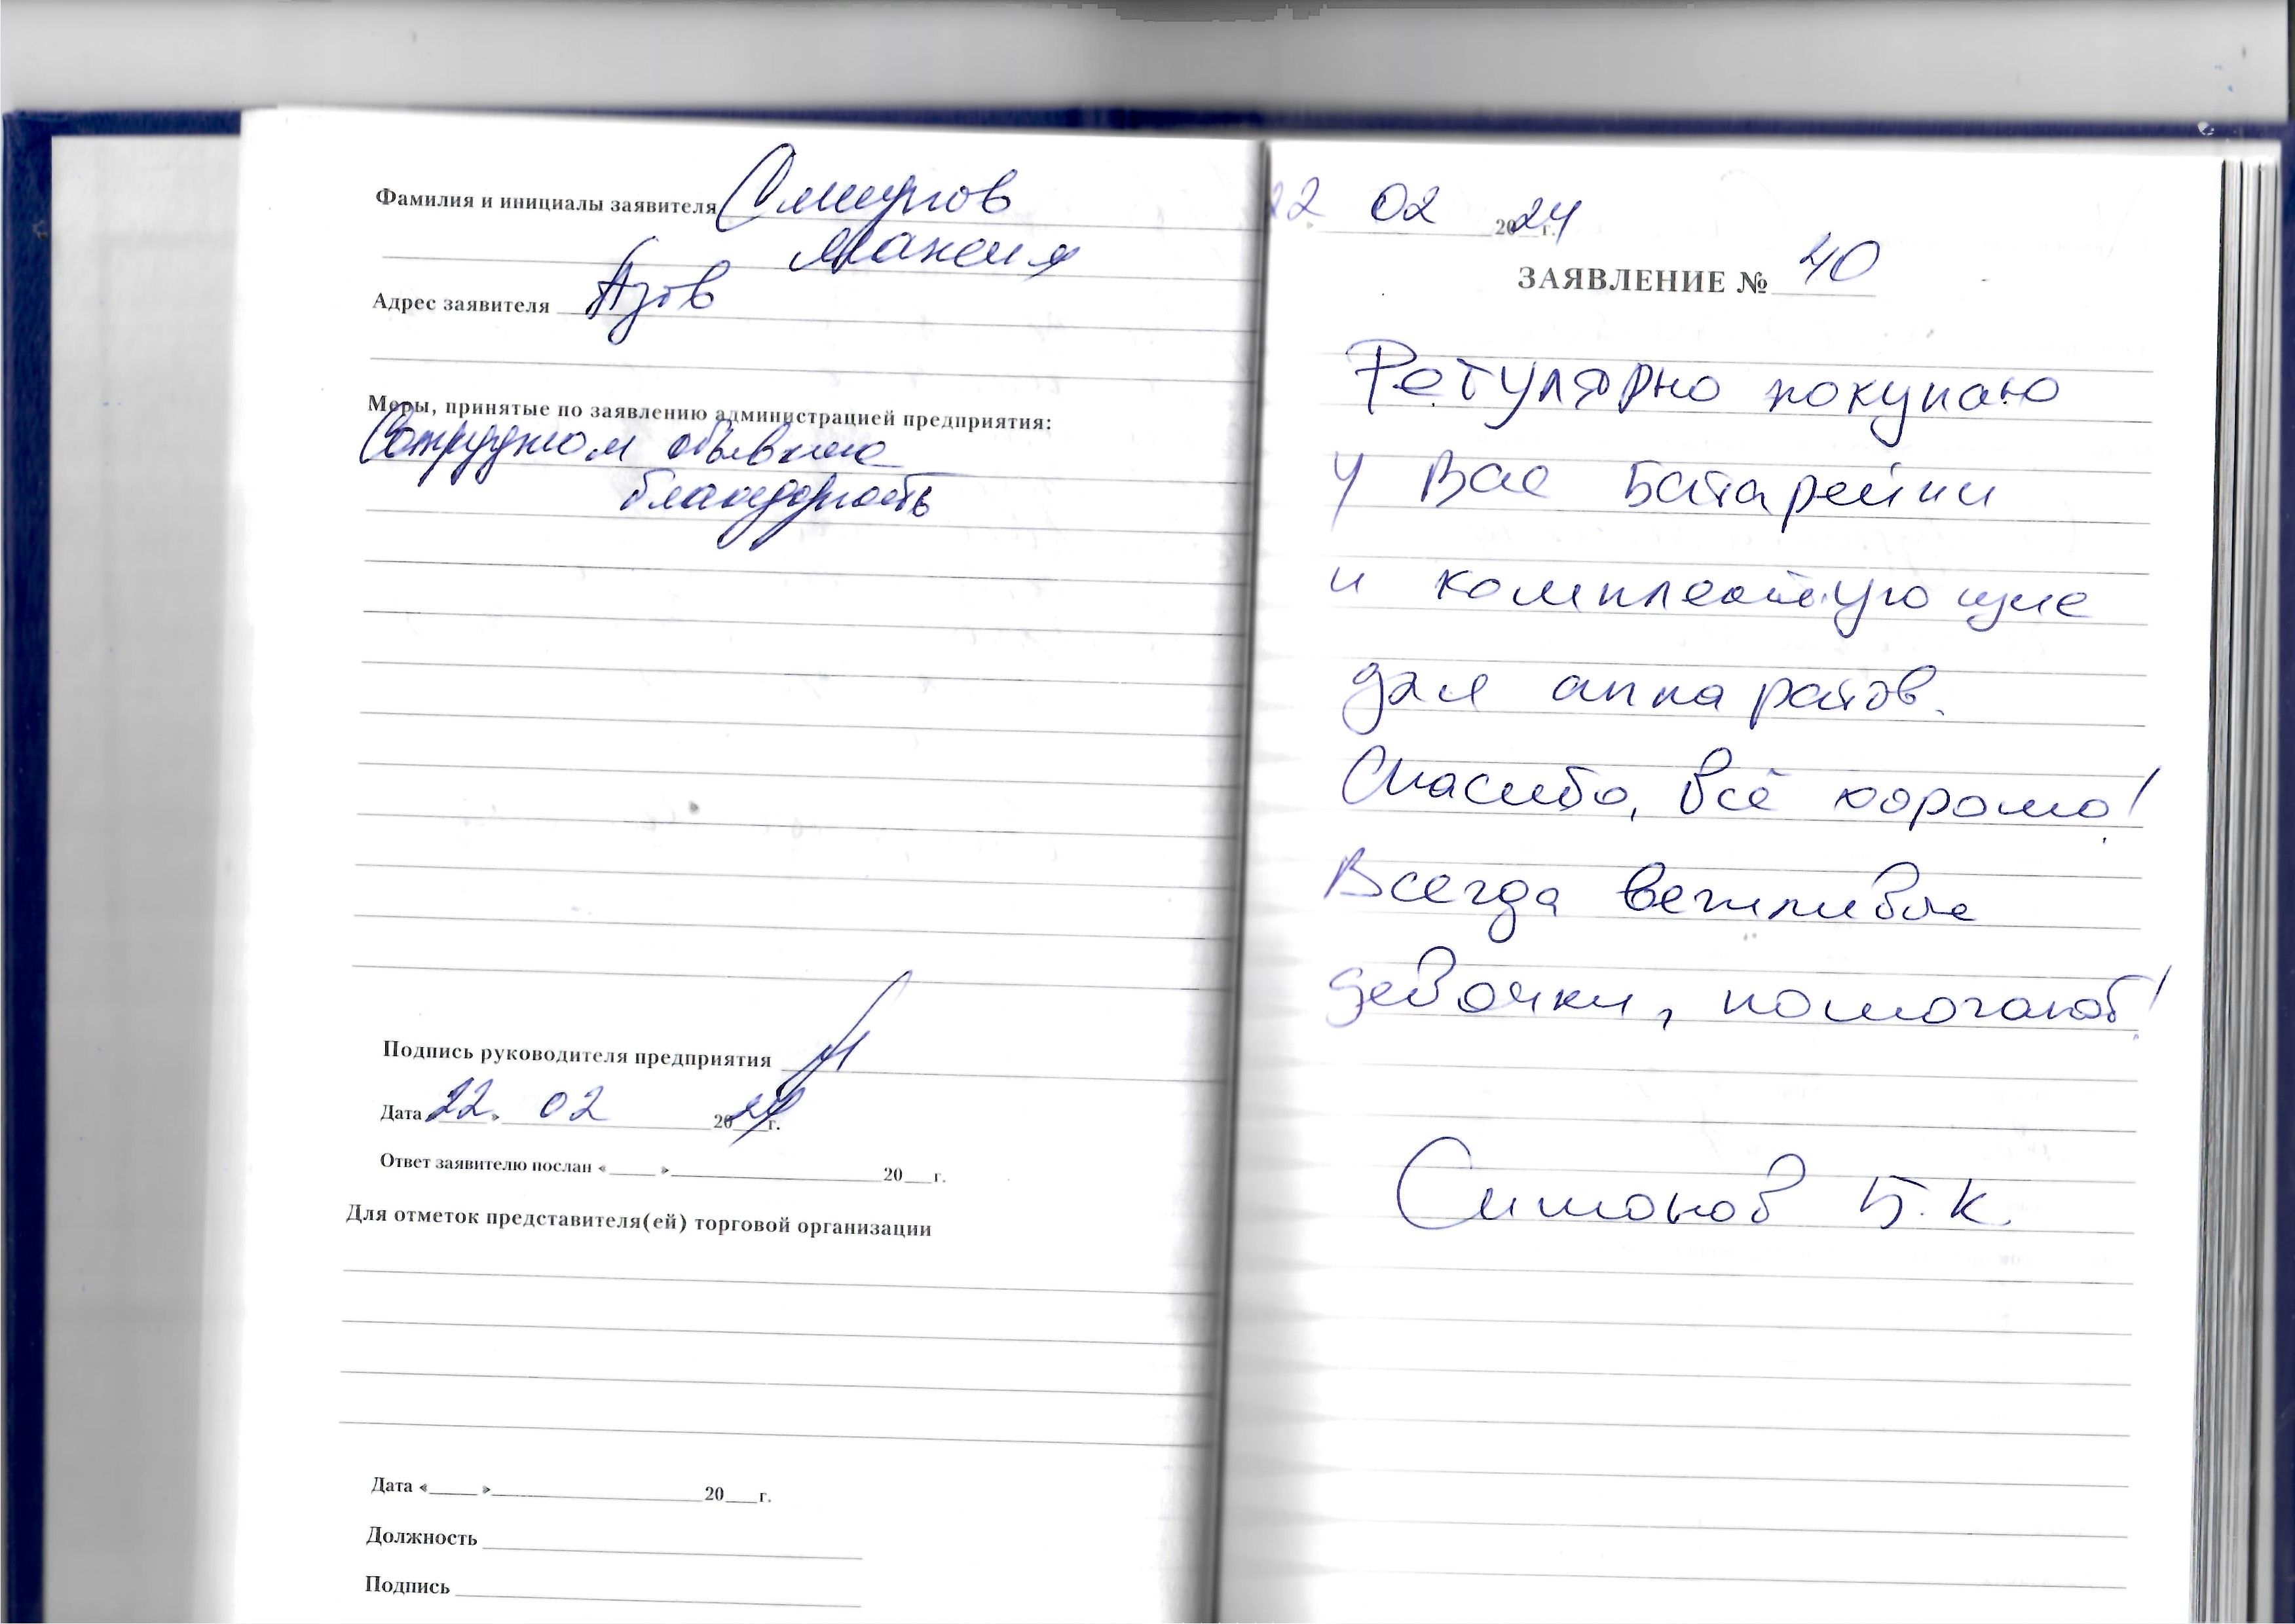 Фамилия и инициалы заявителя Смирнов
Максим
Адрес заявителя Азов
Меры, принятые по заявлению администрацией предприятия:
Сотрудном объявлена
благодарность
Подпись руководителя предприятия
Дата 22 » 02 2024 г.
Ответ заявителю послан « » 20 г.
Для отметок представителя(ей) торговой организации
Дата « » 20 г.
Должность
Подпись
22 02 2024 г.
ЗАЯВЛЕНИЕ № 40
Регулярно покупаю
у Вас батарейки
и комплектующие
для аппаратов.
Спасибо, всё хорошо!
Всегда вежливые
девочки, помогают!
Симонов Б.К.